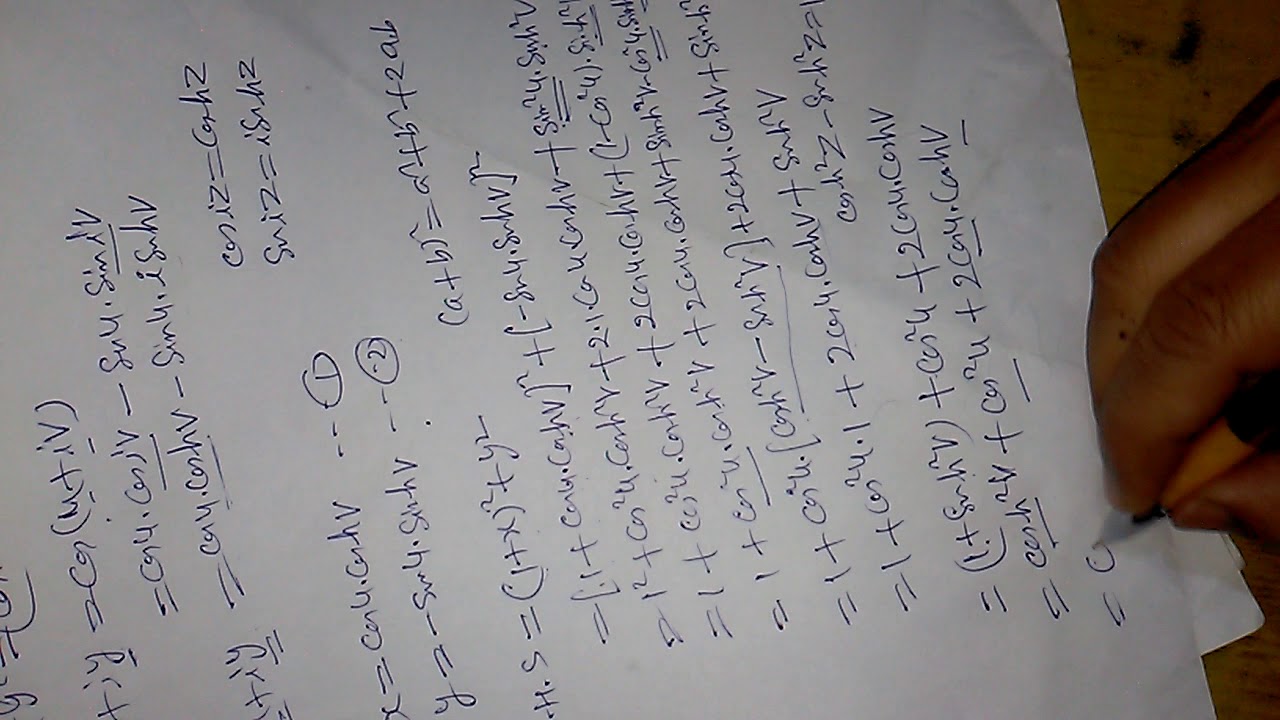 +iy = cos(u+iv)
= cosu.cosiv - sinu.siniv
+iy = cosu.coshv - sinu.isinhv
cosiz = coshz
siniz = isinhz
x = cosu.coshv --- ①
y = -sinu.sinhv --- ②
(a+b)² = a²+b²+2ab
.H.S = (1+x)²+y²
= [1+cosu.coshv]²+[-sinu.sinhv]²
= 1²+cos²u.cosh²v+2.1.cosu.coshv+sin²u.sinh²v
= 1+cos²u.cosh²v+2cosu.coshv+(1-cos²u).sinh²v
= 1+cos²u.cosh²v+2cosu.coshv+sinh²v-cos²u.sinh²
= 1+cos²u.[cosh²v-sinh²v]+2cosu.coshv+sinh²v
= 1+cos²u.1+2cosu.coshv+sinh²v
cosh²z-sinh²z=1
= (1+sinh²v)+cos²u+2cosu.coshv
= cosh²v+cos²u+2cosu.coshv
= C